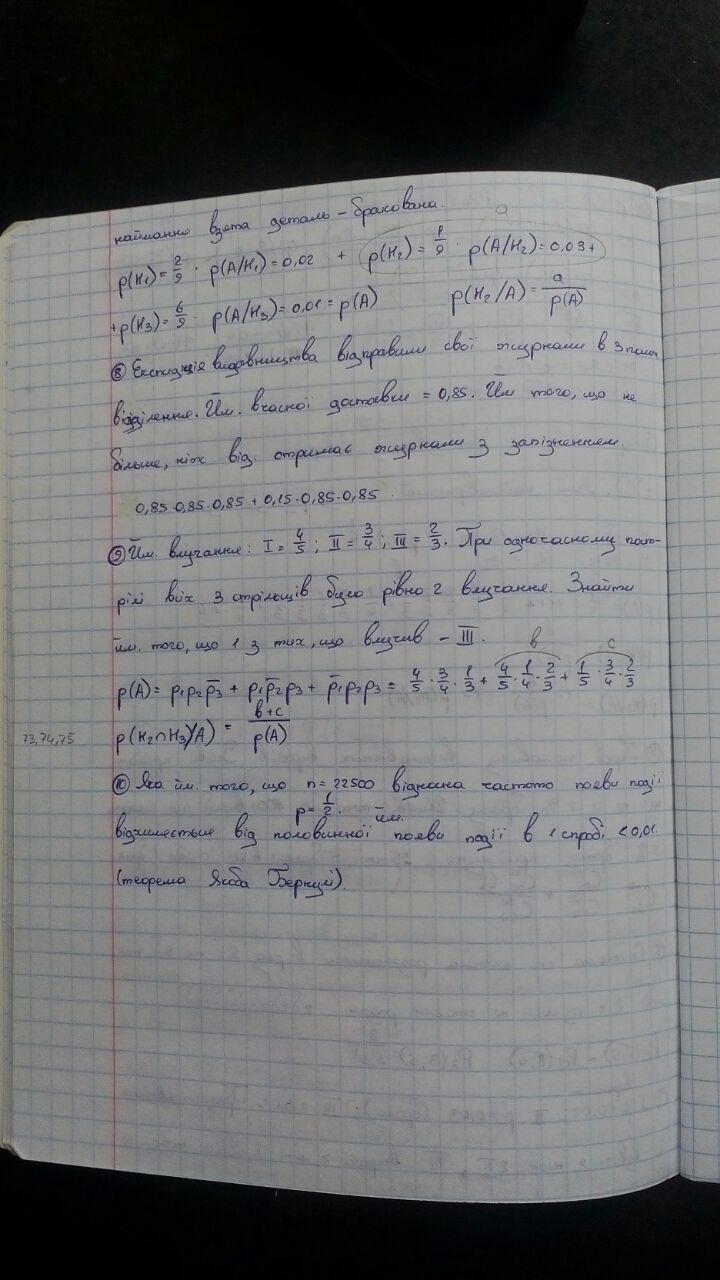 найманню взята деталь - бракована.
p(H₁) = 2/9 · p(A/H₁) = 0,02 + p(H₂) = 1/9 · p(A/H₂) = 0,03 +
a
+ p(H₃) = 6/9 · p(A/H₃) = 0,01 = p(A) p(H₂/A) = a/p(A)
⑧ видавництва відправили свої журнали в 3 пошт
відділення. Йм. вчасної доставки = 0,85. Йм того, що не
більше, ніж від. отримає журнали з запізненням.
0,85·0,85·0,85 + 0,15·0,85·0,85.
⑨ Йм. влучання: I = 4/5; II = 3/4; III = 2/3. При одночасному пост-
рілі всіх 3 стрільців було рівно 2 влучання. Знайти
йм. того, що 1 з тих, що влучив - III.
b c
p(A) = p₁p₂p̅₃ + p₁p̅₂p₃ + p̅₁p₂p₃ = 4/5 · 3/4 · 1/3 + 4/5 · 1/4 · 2/3 + 1/5 · 3/4 · 2/3
73,74,75 p(H₂∩H₃)/A) = b+c/p(A)
⑩ Яка йм. того, що n = 22500 відносна частота появи події
p = 1/2. йм.
відхиляється від половинної появи події в 1 спробі < 0,01.
(теорема Якоба Бернулі).